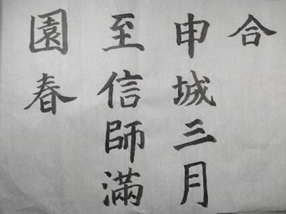 合
申城三月
至信師滿
園春